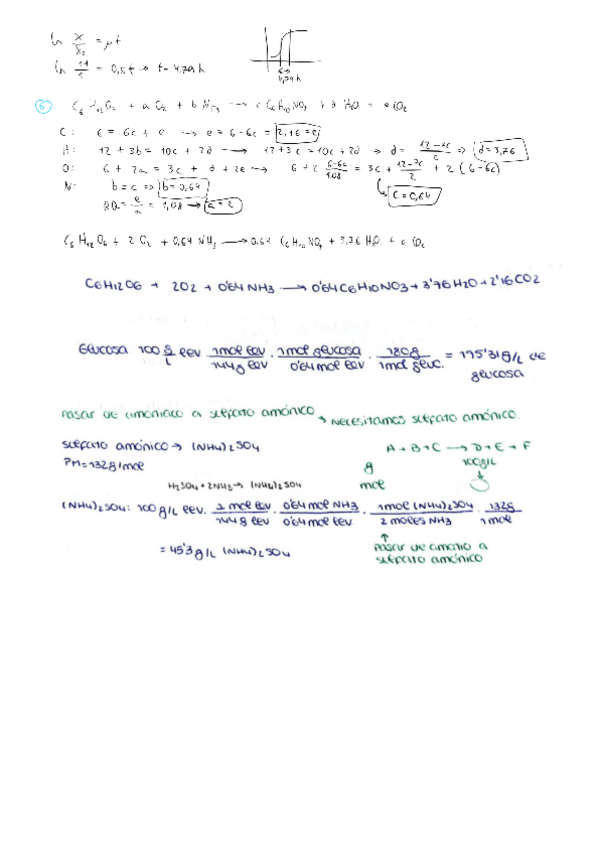 ln x/x₀ = μt
ln 11/1 = 0,5t → t = 4,79 h
4,79 h
⑥ C₆H₁₂O₆ + a O₂ + b NH₃ → c C₆H₁₀NO₃ + d H₂O + e CO₂
C: 6 = 6c + e → e = 6-6c = 2,16 = e
H: 12 + 3b = 10c + 2d → 12 + 3c = 10c + 2d → d = (12-7c)/2 ⇒ d = 3,76
O: 6 + 2a = 3c + d + 2e → 6 + 2 (6-6c)/1.08 = 3c + (12-7c)/2 + 2 (6-6c)
N: b = c ⇒ b = 0,64 c = 0,64
RQ = e/a = 1,08 → a = 2
C₆H₁₂O₆ + 2 O₂ + 0,64 NH₃ → 0.64 C₆H₁₀NO₃ + 3.76 H₂O + e CO₂
C6H12O6 + 2O2 + 0'64NH3 → 0'64C6H10NO3 + 3'76H2O + 2'16CO2
Glucosa 100 g/L lev · 1mol lev/144g lev · 1mol glucosa/0'64mol lev · 180g/1mol gluc. = 195'31g/L de
glucosa
Pasar de amoniaco a sulfato amónico → Necesitamos sulfato amónico.
Sulfato amónico → (NH4)2SO4 A + B + C → D + E + F
PM = 132g/mol g 100g/L
mol
H2SO4 + 2NH3 → (NH4)2SO4
(NH4)2SO4: 100g/L lev. · 1 mol lev/144g lev · 0'64 mol NH3/0'64 mol lev · 1mol (NH4)2SO4/2 moles NH3 · 132g/1mol
= 45'3g/L (NH4)2SO4
Pasar de amonio a
sulfato amónico